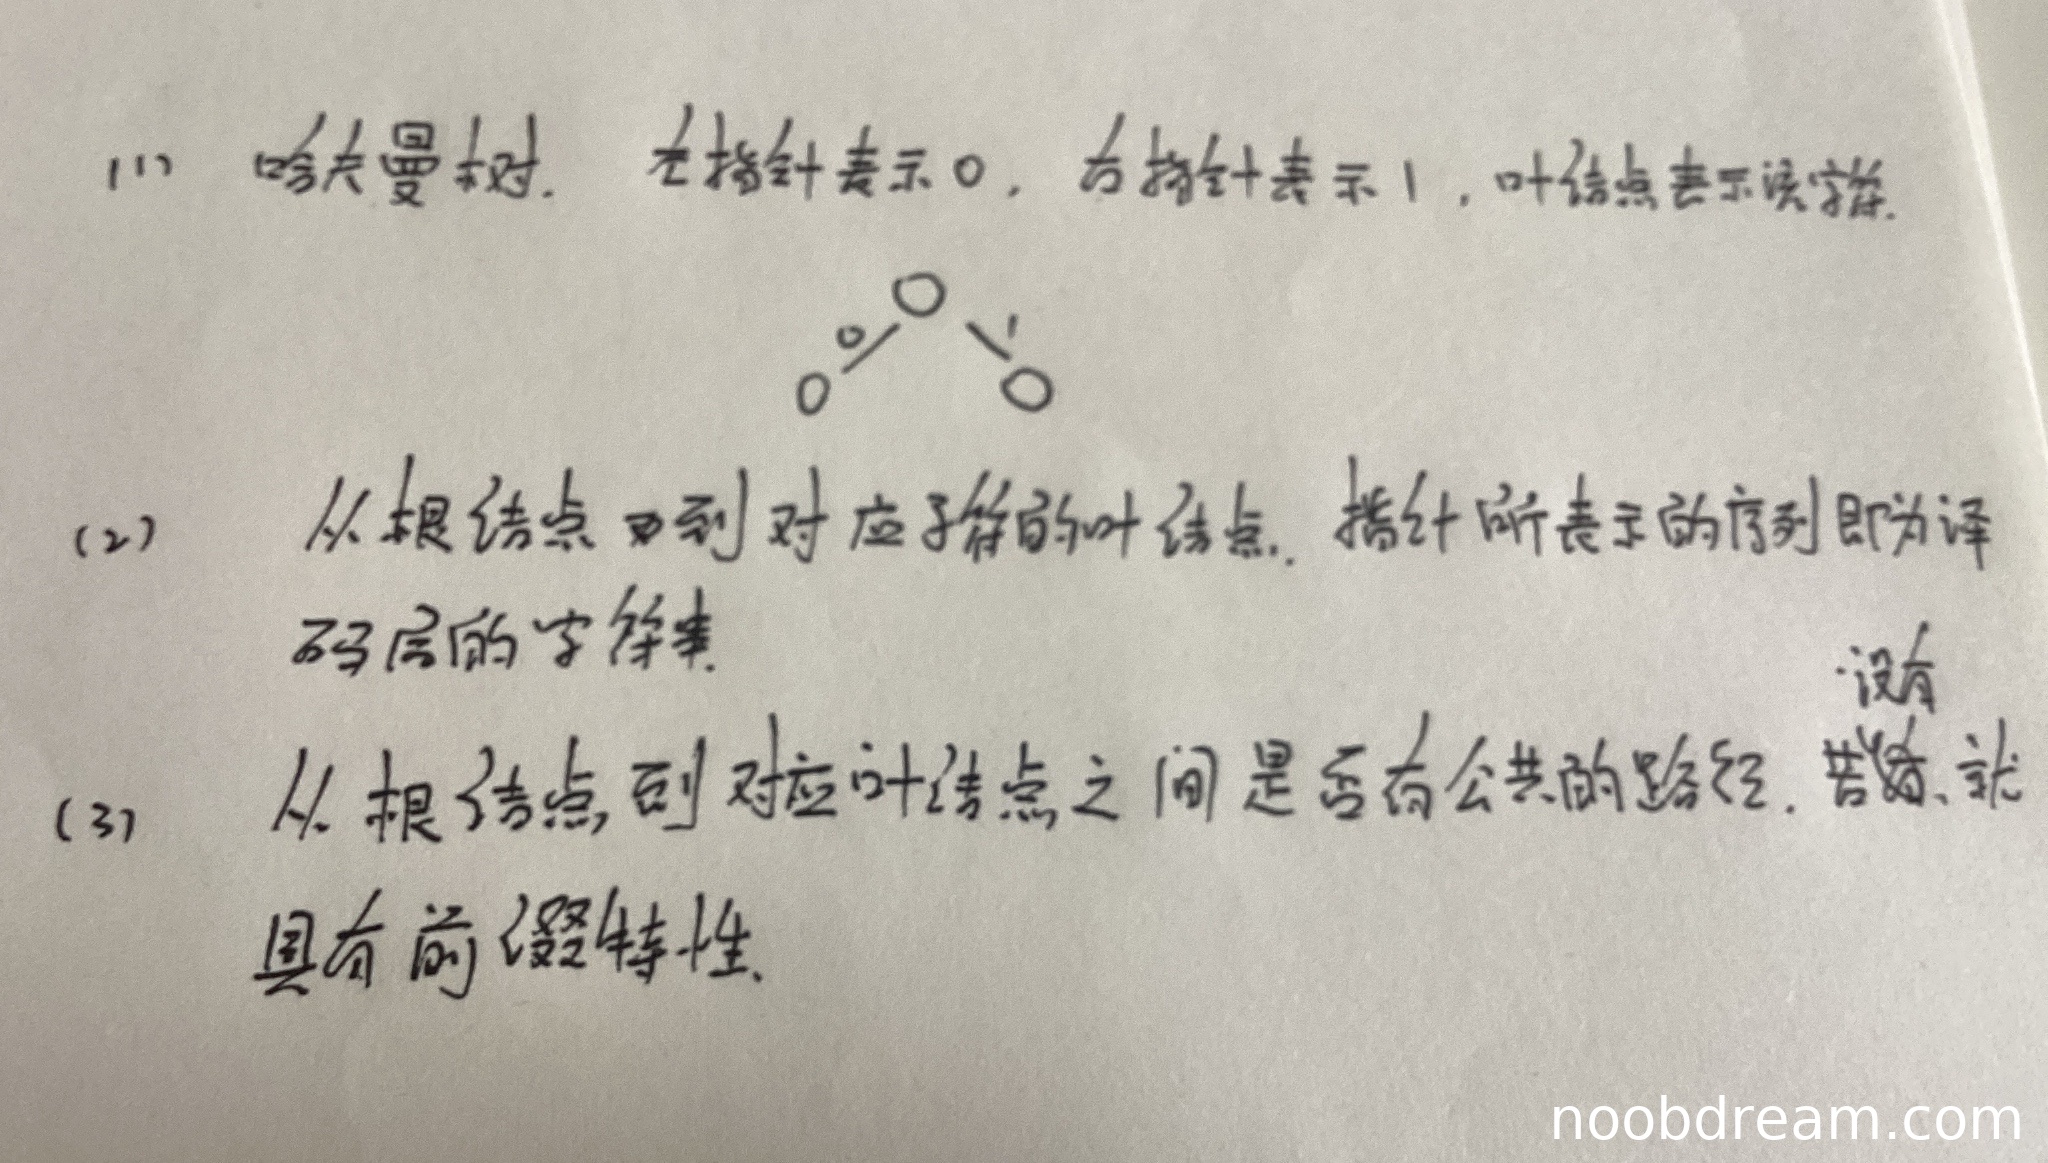 (1) 哈夫曼树. 左指针表示0, 右指针表示1, 叶结点表示该字符.
0 1
(2) 从根结点到对应字符的叶结点. 指针所表示的序列即为译
码后的字符串.
没有
(3) 从根结点到对应叶结点之间是否有公共的路径. 若 就
具有前缀特性.
noobdream.com